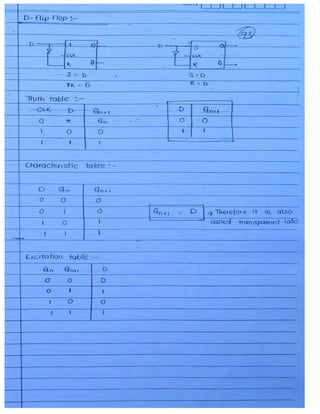 D-Flip Flop :-
93
D J Q D S Q
CLK CLK
K Q̅ R Q̅
J = D S = D
K = D̅ R = D̅
Truth table :-
CLK D Qn+1 D Qn+1
0 x Qn 0 0
1 0 0 1 1
1 1 1
Characteristic table :-
D Qn Qn+1
0 0 0
0 1 0 Qn+1 = D Therefore it is also
1 0 1 called transparent latch
1 1 1
Excitation table :-
Qn Qn+1 D
0 0 0
0 1 1
1 0 0
1 1 1